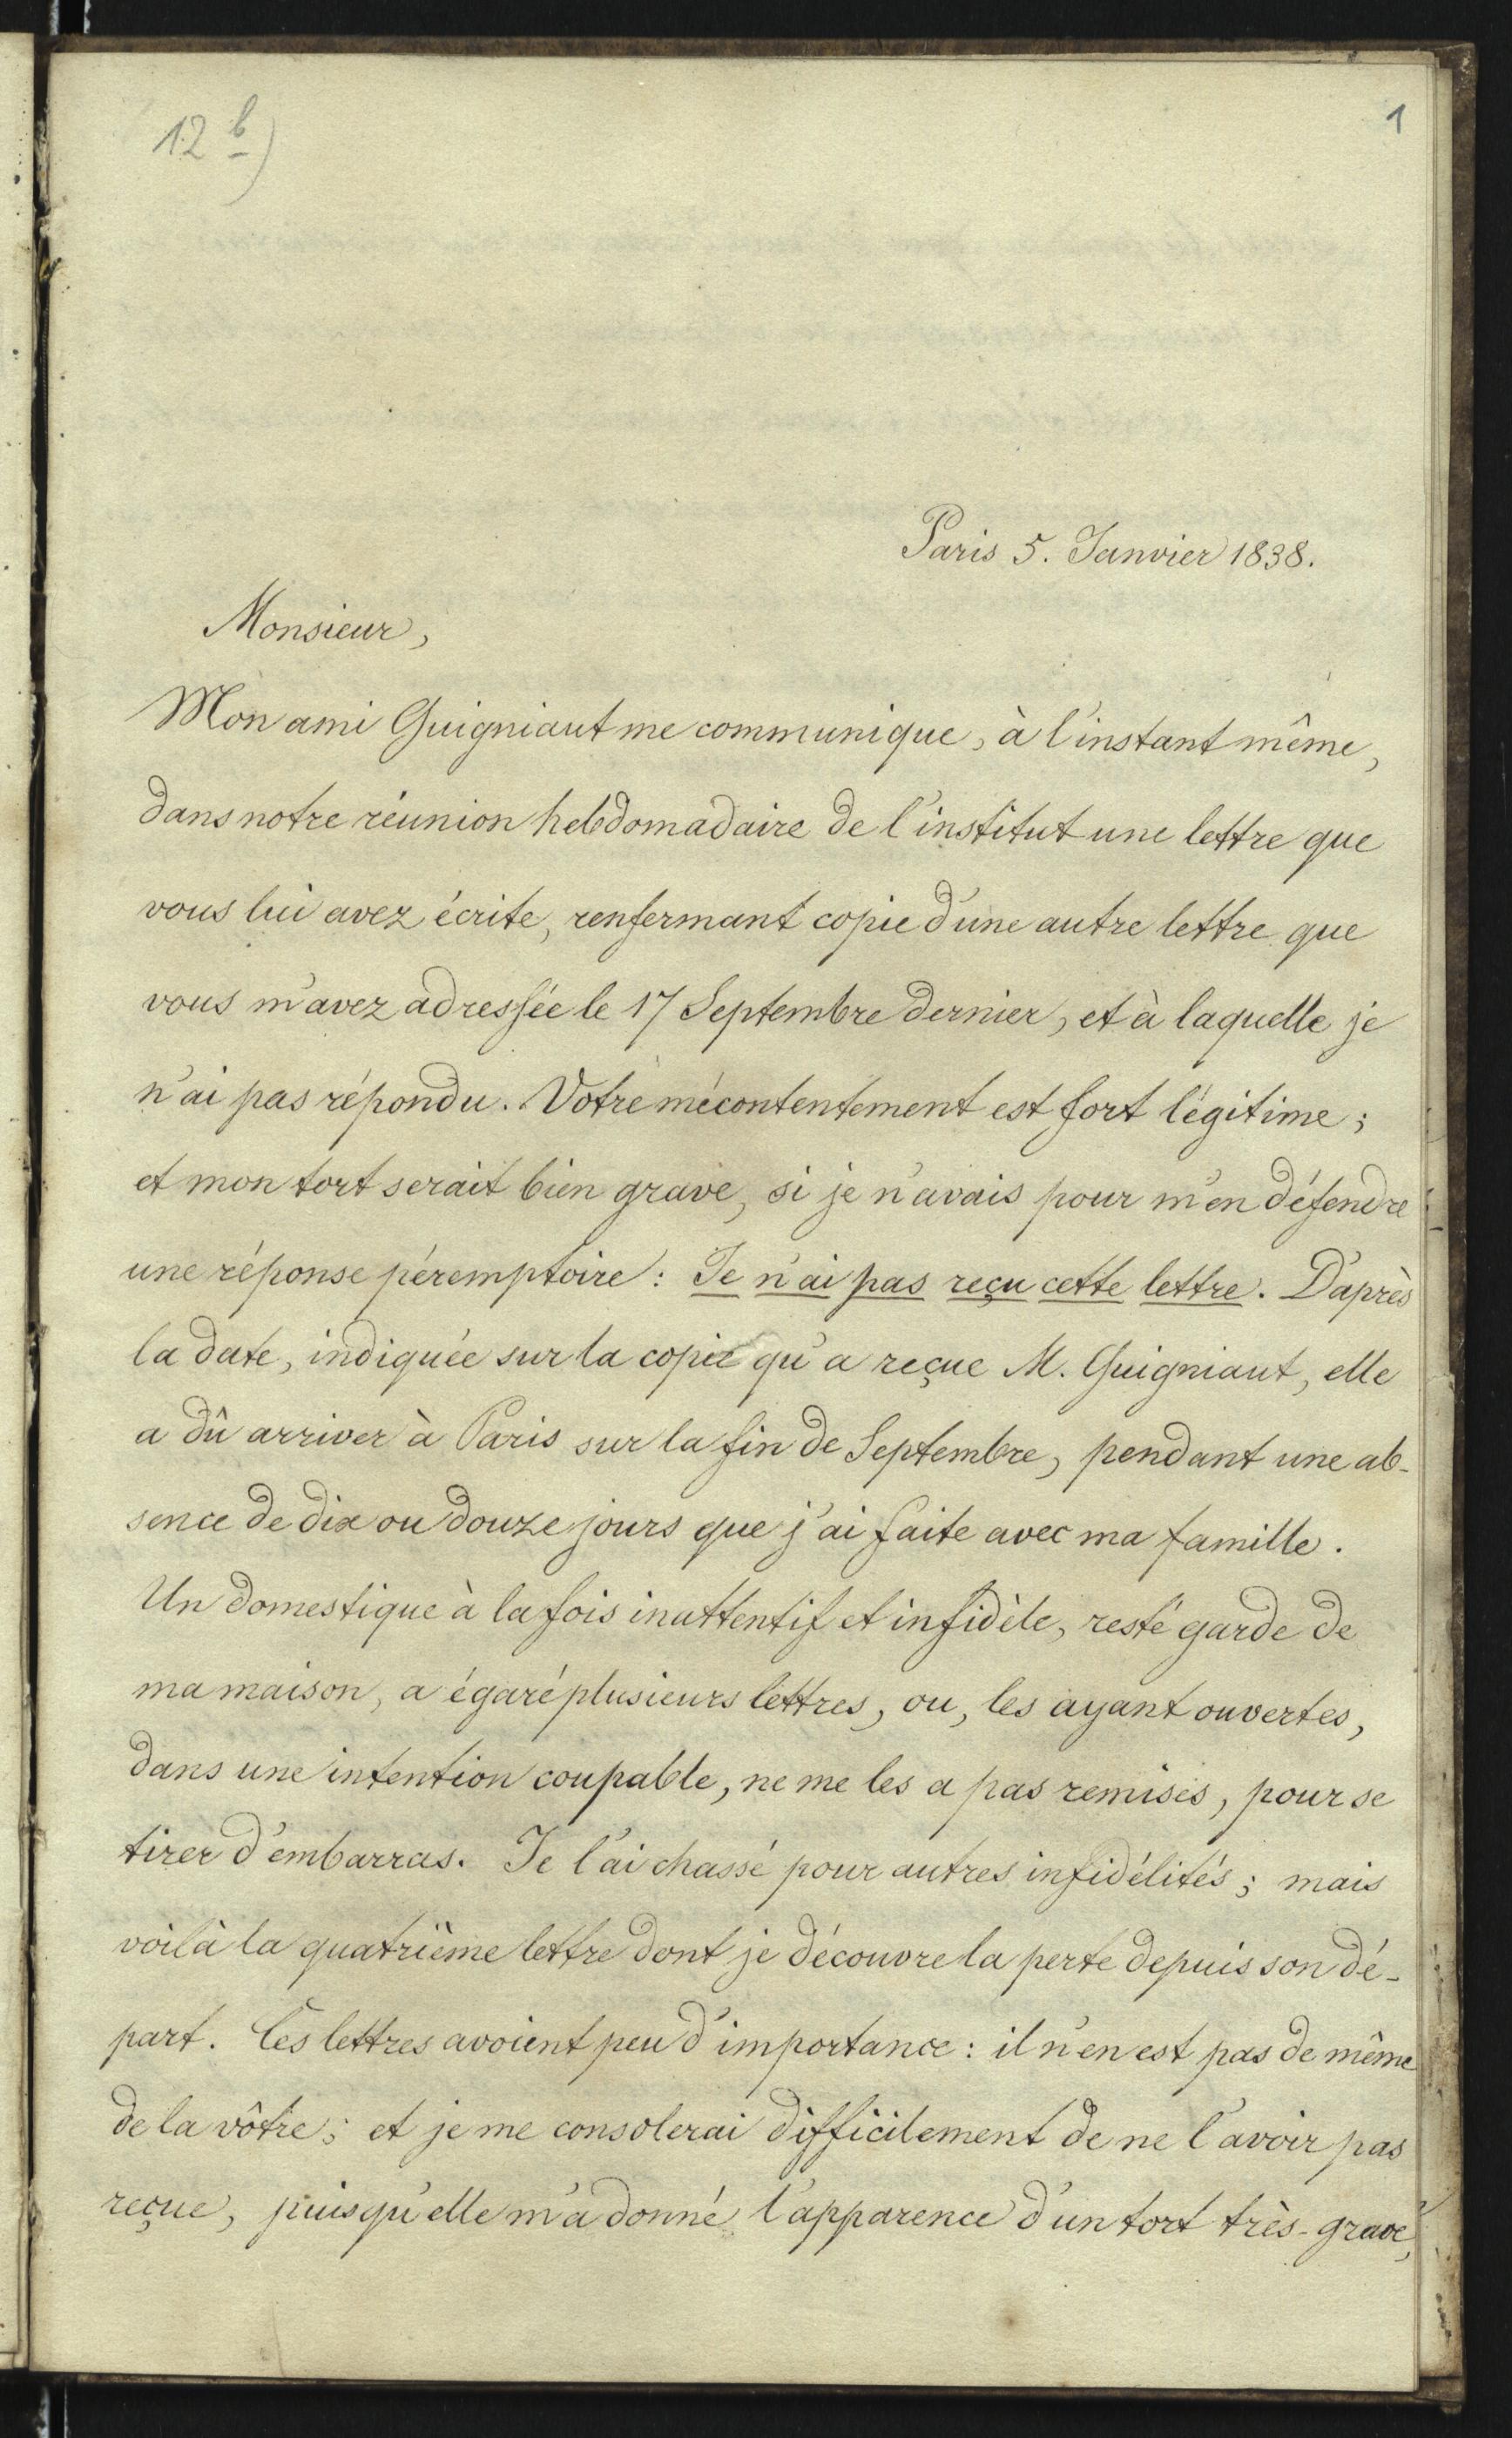 12 b)
1
Paris 5. Janvier 1838.
Monsieur,
Mon ami Guigniaut me communique, à l'instant même,
dans notre réunion hebdomadaire de l'institut une lettre que
vous lui avez écrite, renfermant copie d'une autre lettre que
vous m'avez adressée le 17 Septembre dernier, et à laquelle je
n'ai pas répondu. Votre mécontentement est fort légitime;
et mon tort serait bien grave, si je n'avais pour m'en défendre
une réponse péremptoire: Je n'ai pas reçu cette lettre. D'après
la date, indiquée sur la copie qu'a reçue M. Guigniaut, elle
a dû arriver à Paris sur la fin de Septembre, pendant une ab-
sence de dix ou douze jours que j'ai faite avec ma famille.
Un domestique à la fois inattentif et infidèle, resté garde de
ma maison, a égaré plusieurs lettres, ou, les ayant ouvertes,
dans une intention coupable, ne me les a pas remises, pour se
tirer d'embarras. Je l'ai chassé pour autres infidélités; mais
voilà la quatrième lettre dont je découvre la perte depuis son dé-
part. Ces lettres avoient peu d'importance: il n'en est pas de même
de la vôtre; et je me consolerai difficilement de ne l'avoir pas
reçue, puisqu'elle m'a donné l'apparence d'un tort très-grave,